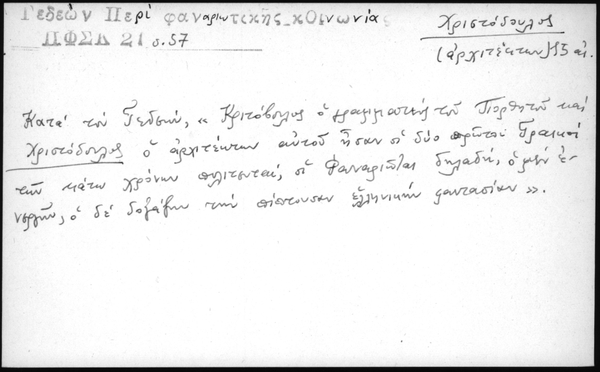 Γεδεών Περί φαναριωτικῆς κοινωνίας
ΠΦΣΛ 21 σ. 57
Χριστόδουλος
(ἀρχιτέκτων) 15 αἰ.
Κατά τόν Γεδεών, « Κριτόβουλος ὁ γραμματεύς τοῦ Πορθητοῦ καί
Χριστόδουλος ὁ ἀρχιτέκτων αὐτοῦ ἦσαν οἱ δύο πρῶτοι Γραικοί
τῶν κάτω χρόνων πολιτευταί, οἱ Φαναριῶται δηλαδή, ὁ μέν ἐ-
νεργῶν, ὁ δέ δοξάζων τήν ἑλληνικήν φαντασίαν ».